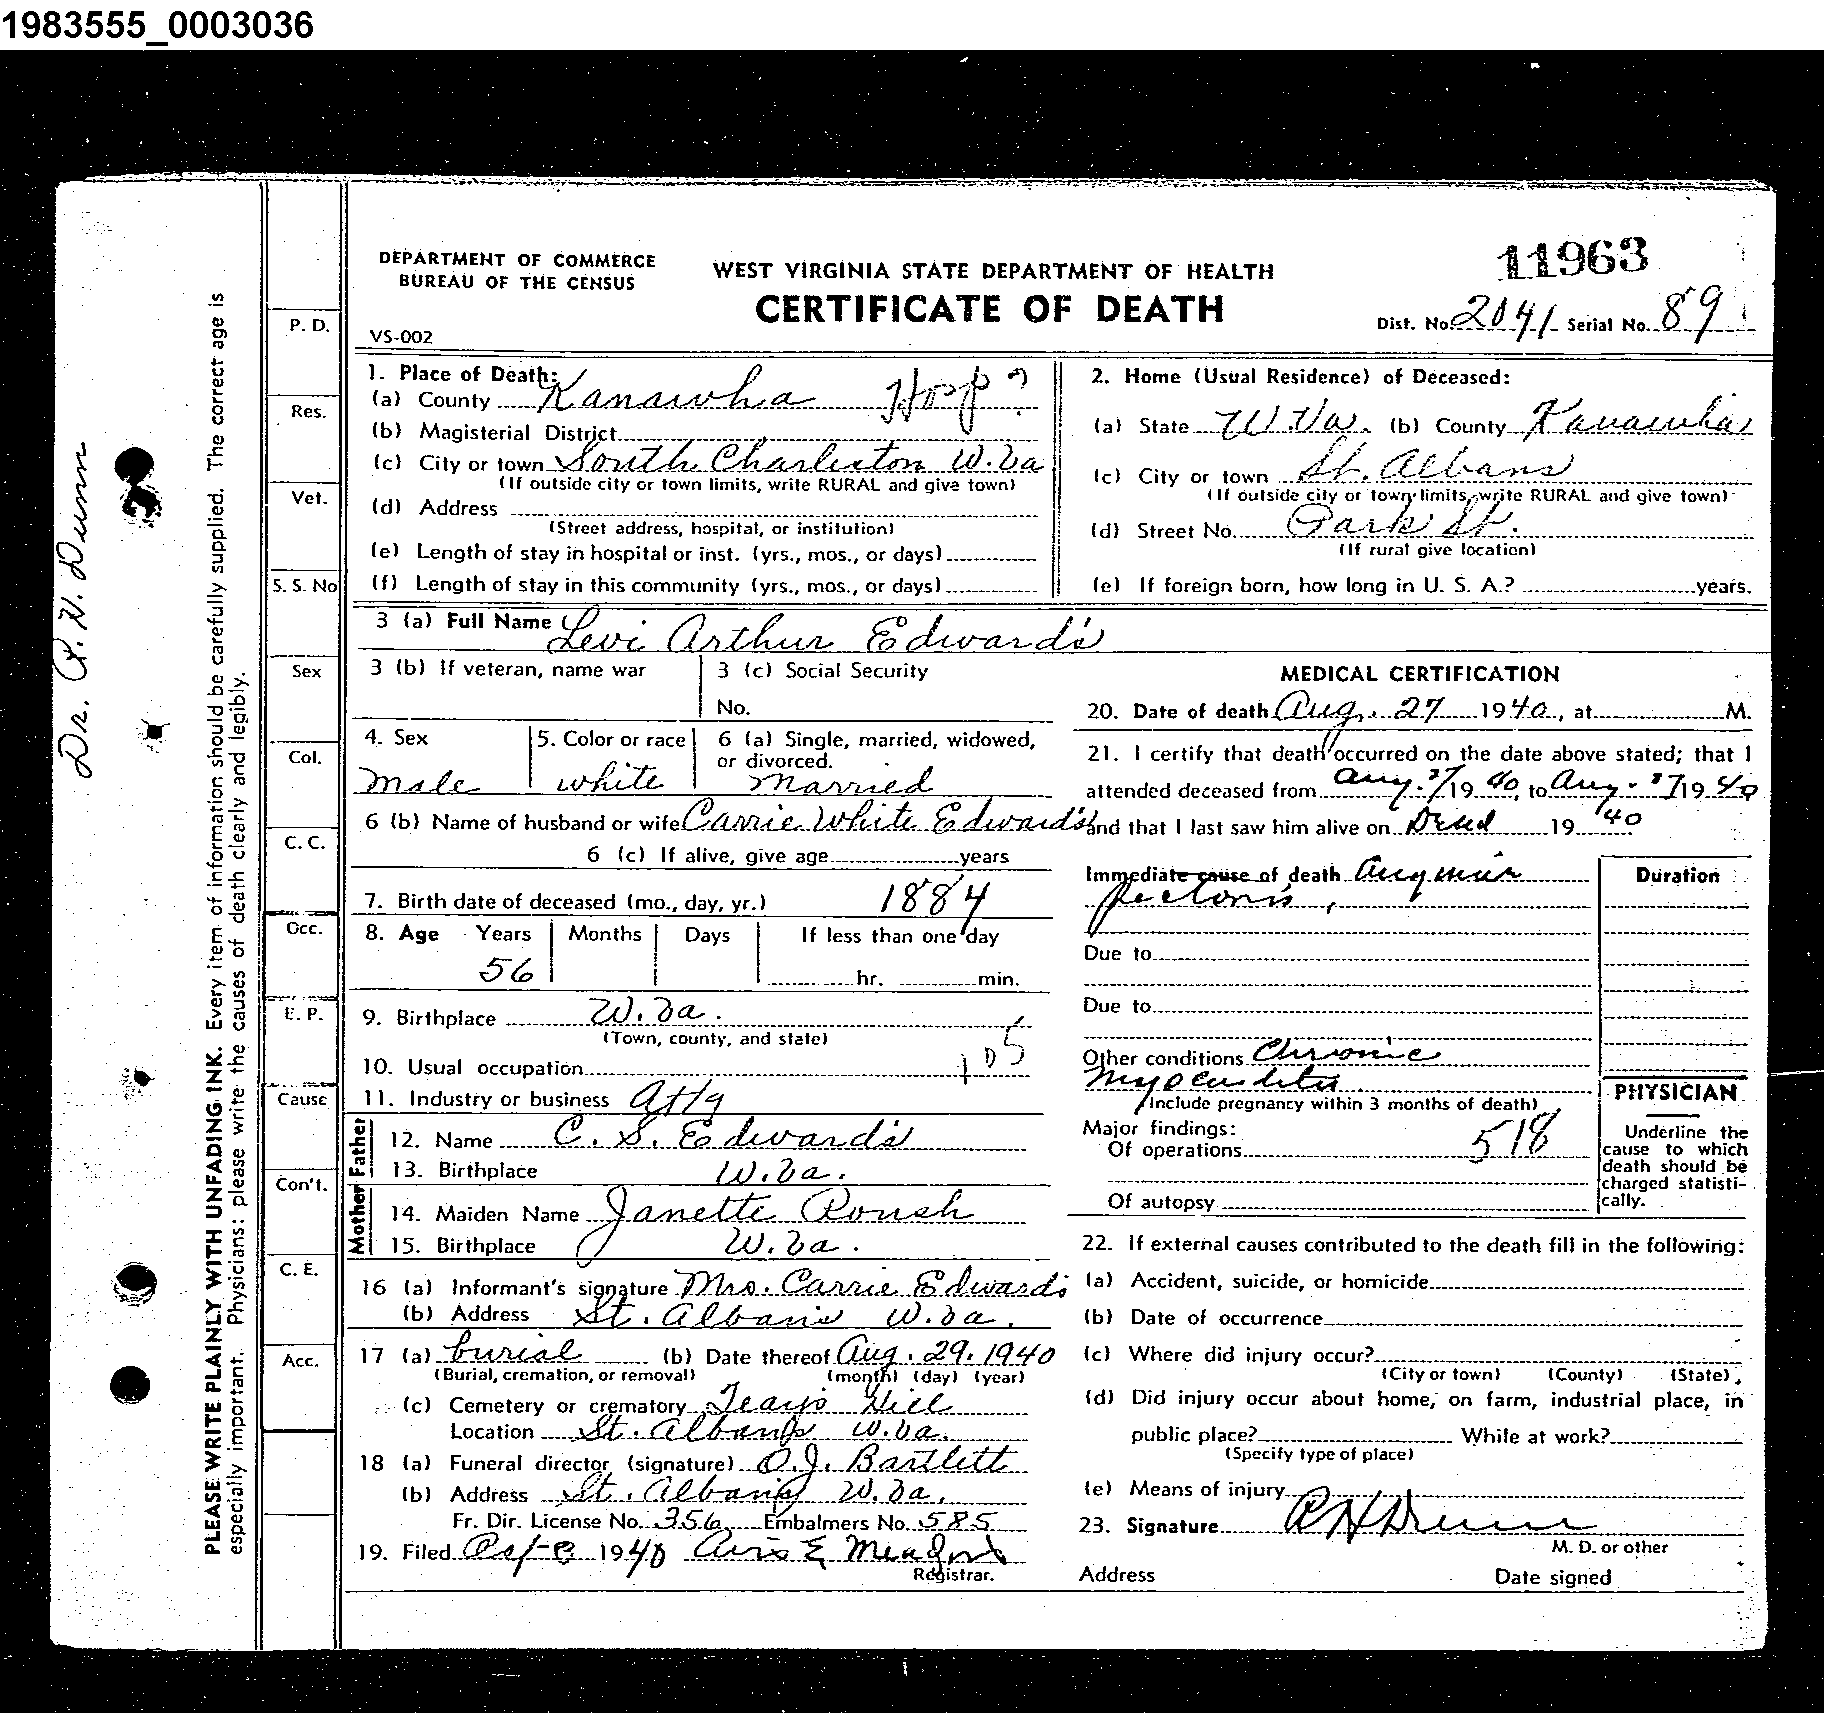 1983555_0003036
DEPARTMENT OF COMMERCE
BUREAU OF THE CENSUS
VS-002
WEST VIRGINIA STATE DEPARTMENT OF HEALTH
CERTIFICATE OF DEATH
11963
Dist. No. 2041 Serial No. 89
1. Place of Death:
(a) County Kanawha Hosp ?
(b) Magisterial District
(c) City or town South Charleston W.Va
(If outside city or town limits, write RURAL and give town)
(d) Address
(Street address, hospital, or institution)
(e) Length of stay in hospital or inst. (yrs., mos., or days)
(f) Length of stay in this community (yrs., mos., or days)
2. Home (Usual Residence) of Deceased:
(a) State W.Va. (b) County Kanawha
(c) City or town St. Albans
(If outside city or town limits, write RURAL and give town)
(d) Street No. Park St.
(If rural give location)
(e) If foreign born, how long in U. S. A.? years.
3 (a) Full Name Levi Arthur Edwards
3 (b) If veteran, name war
3 (c) Social Security
No.
4. Sex
male
5. Color or race
white
6 (a) Single, married, widowed,
or divorced.
married
6 (b) Name of husband or wife Carrie White Edwards
6 (c) If alive, give age years
7. Birth date of deceased (mo., day, yr.) 1884
8. Age Years Months Days If less than one day
56 hr. min.
9. Birthplace W.Va.
(Town, county, and state)
10. Usual occupation
11. Industry or business Atty
Father
12. Name C. S. Edwards
13. Birthplace W.Va.
Mother
14. Maiden Name Janette Roush
15. Birthplace W.Va.
16 (a) Informant's signature Mrs. Carrie Edwards
(b) Address St. Albans W.Va.
17 (a) burial (b) Date thereof Aug. 29. 1940
(Burial, cremation, or removal) (month) (day) (year)
(c) Cemetery or crematory Teays Hill
Location St. Albans W.Va.
18 (a) Funeral director (signature) O.J. Bartlett
(b) Address St. Albans W.Va.
Fr. Dir. License No. 356 Embalmers No. 585
19. Filed 1940
Registrar.
MEDICAL CERTIFICATION
20. Date of death Aug. 27 1940, at M.
21. I certify that death occurred on the date above stated; that I
attended deceased from Aug. 27 1940, to Aug. 27 1940
and that I last saw him alive on Dead 1940
Immediate cause of death Angina
pectoris,
Duration
Due to
Due to
Other conditions Chronic
myocarditis
(Include pregnancy within 3 months of death)
Major findings:
Of operations 518
Of autopsy
PHYSICIAN
Underline the
cause to which
death should be
charged statisti-
cally.
22. If external causes contributed to the death fill in the following:
(a) Accident, suicide, or homicide
(b) Date of occurrence
(c) Where did injury occur?
(City or town) (County) (State)
(d) Did injury occur about home, on farm, industrial place, in
public place? While at work?
(Specify type of place)
(e) Means of injury
23. Signature R H Dunn
M. D. or other
Address Date signed
P. D.
Res.
Vet.
S. S. No
Sex
Col.
C. C.
Occ.
E. P.
Cause
Con't.
C. E.
Acc.
PLEASE WRITE PLAINLY WITH UNFADING INK. Every item of information should be carefully supplied. The correct age is
especially important. Physicians: please write the causes of death clearly and legibly.
Dr. R. H. Dunn